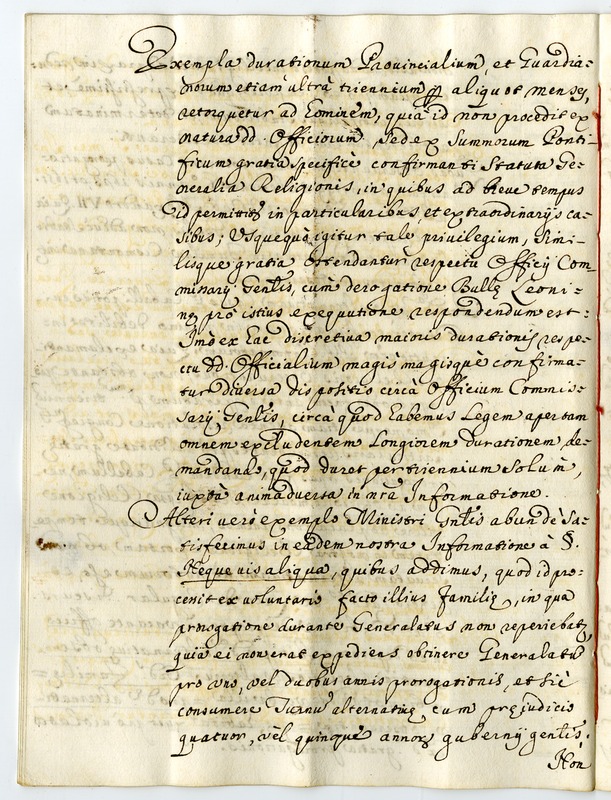 Exempla durationum Provincialium, et Guardia=
norum etiam ultrà triennium pp aliquot menses,
retorquetur ad Hominem, quia id non procedit ex
natura dd. Officiorum, sed ex Summorum Ponti=
ficum gratia specificè confirmanti Statuta Ge=
neralia Religionis, in quibus ad breve tempus
id permittit in particularibus, et extraordinarijs ca=
sibus; Usquequò igitur tale privilegium, simi=
lisque gratia ostendantur respectu Officij Com=
missarij Gentis, cum derogatione Bullę Leoni=
nę pro istius exequutione respondendum est:
Imò ex hac discretiva maioris durationis respe=
ctu dd. Officialium magis magisquè confirma=
tur diversa dispositio circà Officium Commis=
sarij Gentis, circà quod habemus Legem apertam
omnem excludentem longiorem durationem de=
mandando, quod duret per triennium solum,
iuxtà animadversa in nrã Informatione.
Alteri verò exemplo Ministri Gntis abundè sa=
tisfecimus in eadem nostra Informatione à §.
Neque vis aliqua, quibus addimus, quod id pro=
cessit ex voluntario facto illius Familię, in qua
prorogatione durante Generalatus non reperiebat,
quia ei non erat expediens obtinere Generalatũ
pro uno, vel duobus annis prorogationis, et sic
consumere Turnũ alternativę cum pręjudicio
quatuor, vèl quinque annorʒ gubernij gentis.
Non